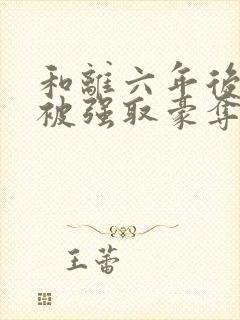 和離六年後
被强取豪奪
王蕾